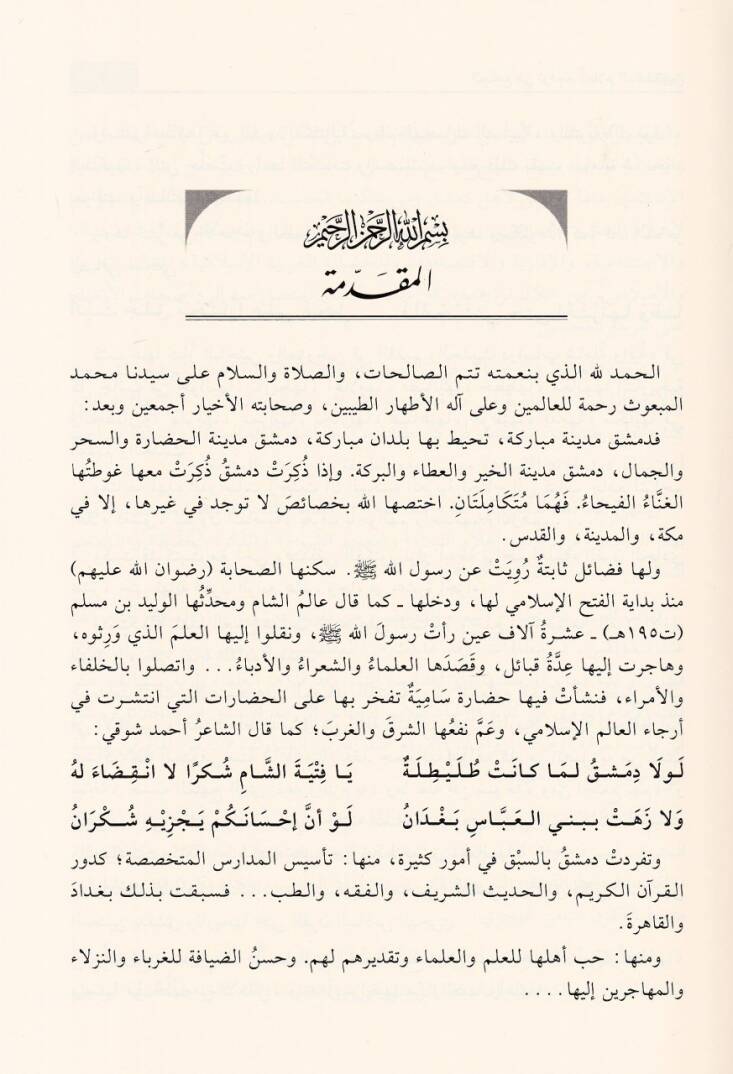 بسم الله الرحمن الرحيم
المقدّمة
الحمد لله الذي بنعمته تتم الصالحات، والصلاة والسلام على سيدنا محمد
المبعوث رحمة للعالمين وعلى آله الأطهار الطيبين، وصحابته الأخيار أجمعين وبعد:
فدمشق مدينة مباركة، تحيط بها بلدان مباركة، دمشق مدينة الحضارة والسحر
والجمال، دمشق مدينة الخير والعطاء والبركة. وإذا ذُكِرَتْ دمشقُ ذُكِرَتْ معها غوطتُها
الغنَّاءُ الفيحاءُ. فَهُمَا مُتَكَامِلَتَانِ. اختصها الله بخصائصَ لا توجد في غيرها، إلا في
مكة، والمدينة، والقدس.
ولها فضائل ثابتةٌ رُوِيَتْ عن رسول الله ﷺ. سكنها الصحابة (رضوان الله عليهم)
منذ بداية الفتح الإسلامي لها، ودخلها ـ كما قال عالمُ الشام ومحدِّثُها الوليد بن مسلم
(ت١٩٥هـ) ـ عشرةُ آلاف عين رأتْ رسولَ الله ﷺ، ونقلوا إليها العلمَ الذي وَرِثوه،
وهاجرت إليها عِدَّةُ قبائل، وقَصَدَها العلماءُ والشعراءُ والأدباءُ... واتصلوا بالخلفاء
والأمراء، فنشأتْ فيها حضارة سَامِيَةٌ تفخر بها على الحضارات التي انتشرت في
أرجاء العالم الإسلامي، وعَمَّ نفعُها الشرقَ والغربَ؛ كما قال الشاعرُ أحمد شوقي:
لَولَا دِمَشقُ لمَا كانَتْ طُلَيْطِلَةٌ يَا فِتْيَةَ الشَّامِ شُكرًا لا انْقِضَاءَ لهُ
وَلا زَهَتْ ببَني العَبَّاسِ بَغْدَانُ لَوْ أنَّ إحْسَانَكُمْ يَجْزِيْهِ شُكْرَانُ
وتفردتْ دمشقُ بالسبْق في أمور كثيرة، منها: تأسيس المدارس المتخصصة؛ كدور
القرآن الكريم، والحديث الشريف، والفقه، والطب... فسبقت بذلك بغدادَ
والقاهرةَ.
ومنها: حب أهلها للعلم والعلماء وتقديرهم لهم. وحسنُ الضيافة للغرباء والنزلاء
والمهاجرين إليها....